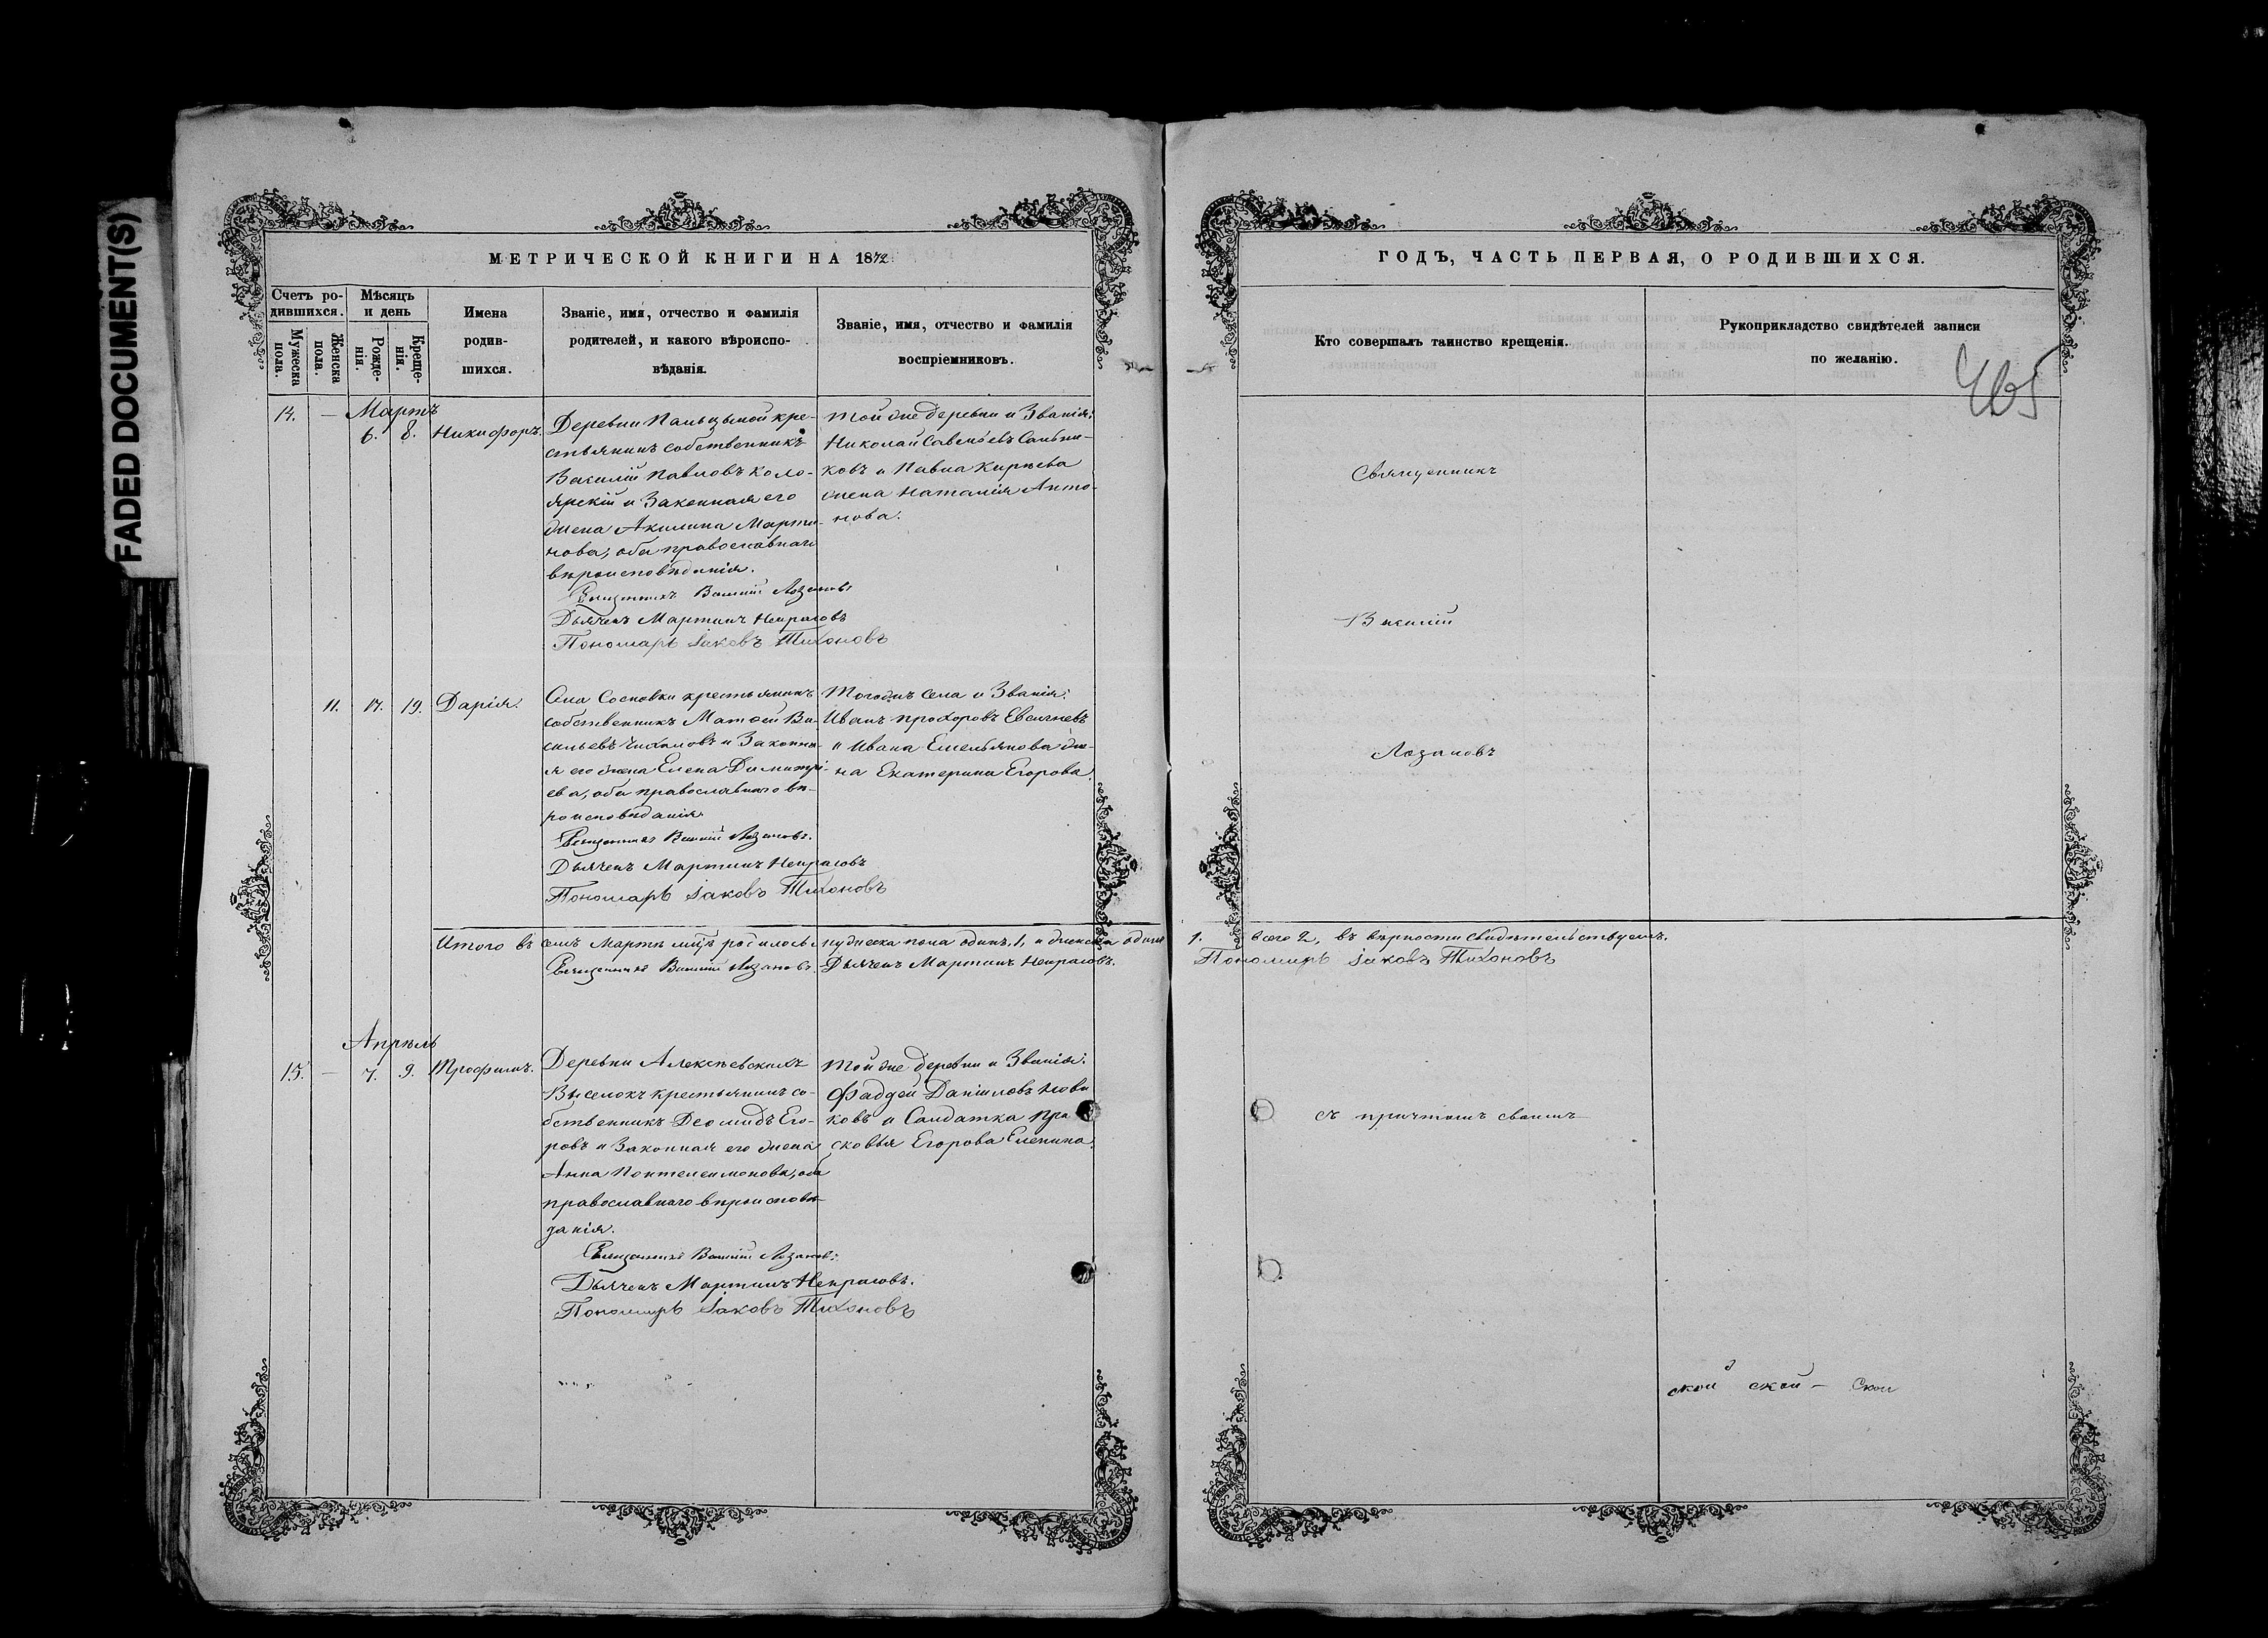 FADED DOCUMENT(S)
МЕТРИЧЕСКОЙ КНИГИ НА 1872
Счетъ родившихся.
Мужеска пола.
Женска пола.
Мѣсяцъ и день
Рожденія.
Крещенія.
Имена родившихся.
Званіе, имя, отчество и фамилія
родителей, и какого вѣроиспо-
вѣданія.
Званіе, имя, отчество и фамилія
воспріемниковъ.
14. — Мартъ
6. 8. Никифоръ.
Деревни Пальцыной кре-
стьянинъ собственникъ
Василій Павловъ Коло-
ярскій и Законная его
жена Акилина Марти-
нова, оба православнаго
вѣроисповѣданія.
Священникъ Василій Лозановъ
Дьячекъ Мартинъ Некрасовъ
Пономарь Іаковъ Тихоновъ
Той же деревни и Званія:
Николай Савельевъ
и Павла Кирѣева
жена Наталія Анто-
нова.
11. 17. 19. Дарія.
Села Сосновки крестьянинъ
собственникъ Матѳей Ва-
сильевъ Чихаловъ и Законна-
я его жена Елена Димитрі-
ева, оба православнаго вѣ-
роисповѣданія.
Священникъ Василій Лозановъ.
Дьячекъ Мартинъ Некрасовъ
Пономарь Іаковъ Тихоновъ
Тогожъ села и Званія:
Иванъ Прохоровъ Евсигнеевъ
и Ивана Емельянова же-
на Екатерина Егорова.
Итого въ семъ Мартѣ мцѣ родилось мужеска пола одинъ, 1, и женска одна
Священникъ Василій Лозановъ. Дьячекъ Мартинъ Некрасовъ.
Апрѣль
15. — 7. 9. Трофимъ.
Деревни Алексѣевскихъ
Выселокъ крестьянинъ со-
бственникъ Деомидъ Его-
ровъ и Законная его жена
Анна Понтелеимонова, оба
православнаго вѣроисповѣ-
данія.
Священникъ Василій Лозановъ.
Дьячекъ Мартинъ Некрасовъ.
Пономарь Іаковъ Тихоновъ
Той же деревни и Званія:
Фаддей Даніиловъ Нови
ковъ и Солдатка Пра
сковья Егорова Еленина.
ГОДЪ, ЧАСТЬ ПЕРВАЯ, О РОДИВШИХСЯ.
Кто совершалъ таинство крещенія.
Рукоприкладство свидѣтелей записи
по желанію.
Священникъ
Василій
Лозановъ
1. всего 2, въ вѣрности свидѣтельствуемъ.
Пономарь Іаковъ Тихоновъ
съ причтомъ своимъ
ской ской — Скои